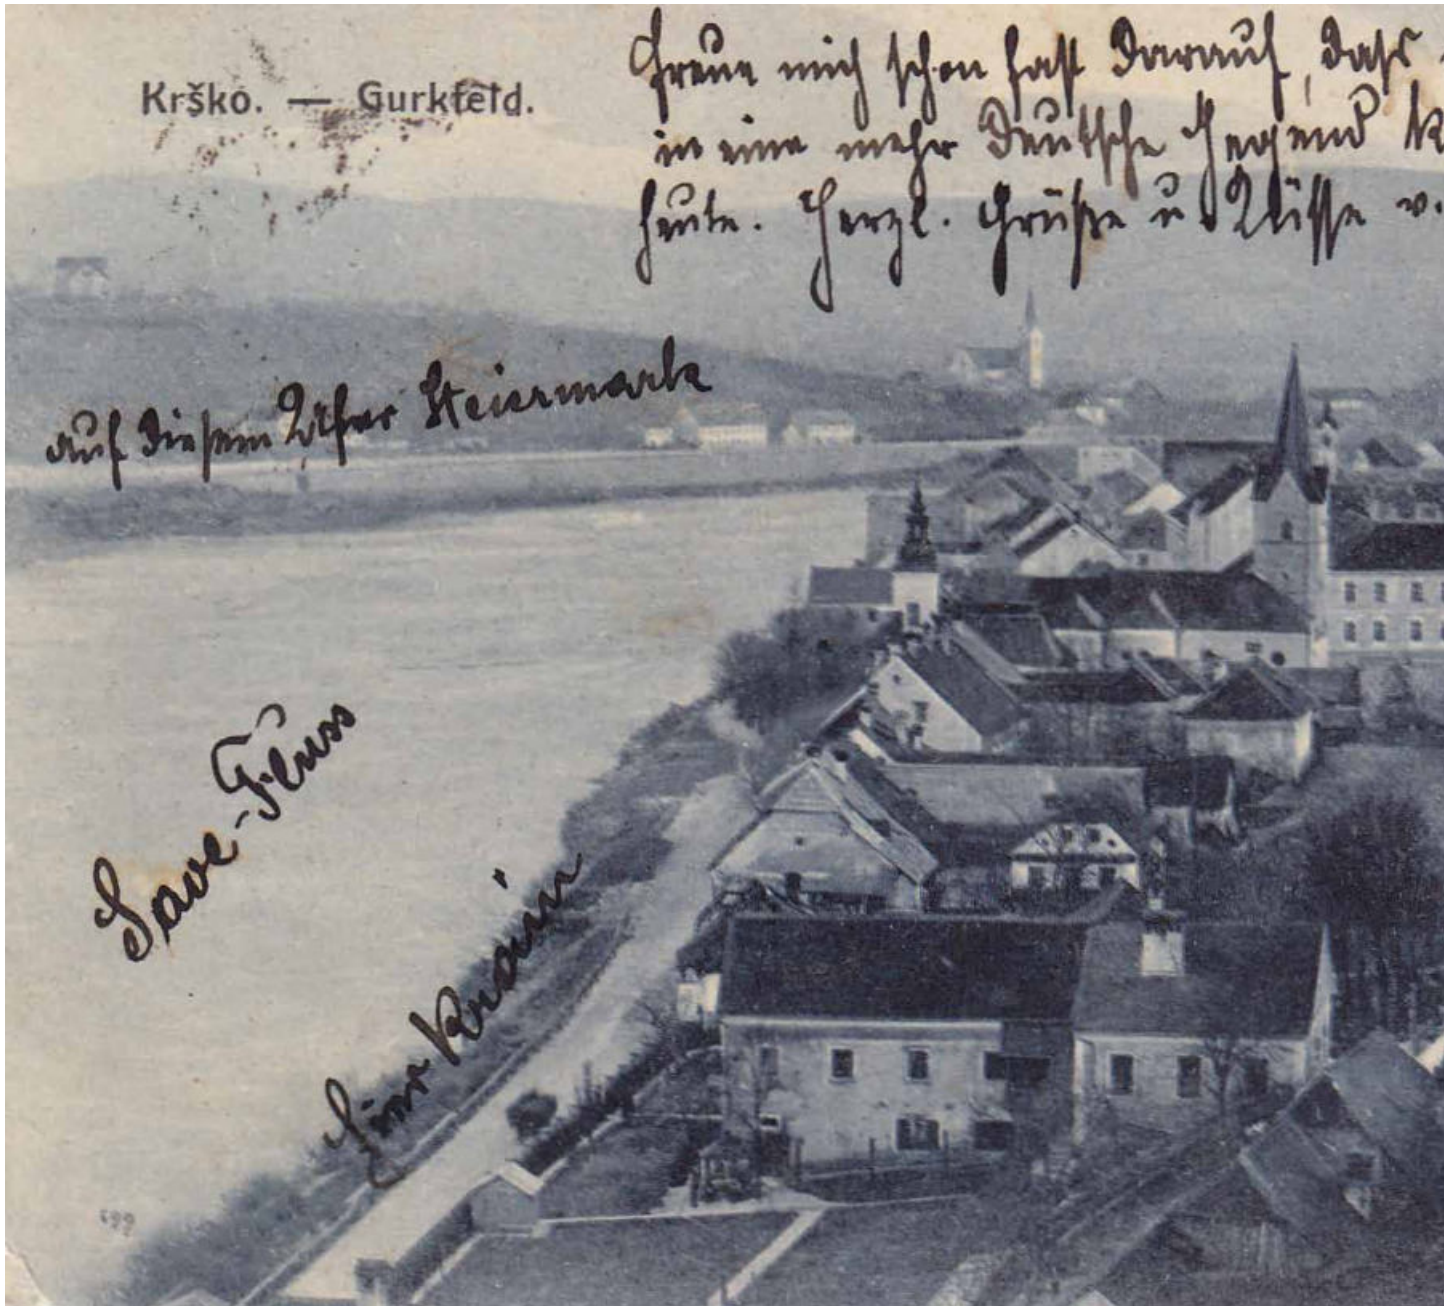 Krško. — Gurkfeld.
Freue mich schon fast darauf, dass
in eine mehr deutsche Gegend
heute. Herzl. Grüße u. Küsse v.
auf diesem Ufer Steiermark
Save-Fluss
hier Krain
699